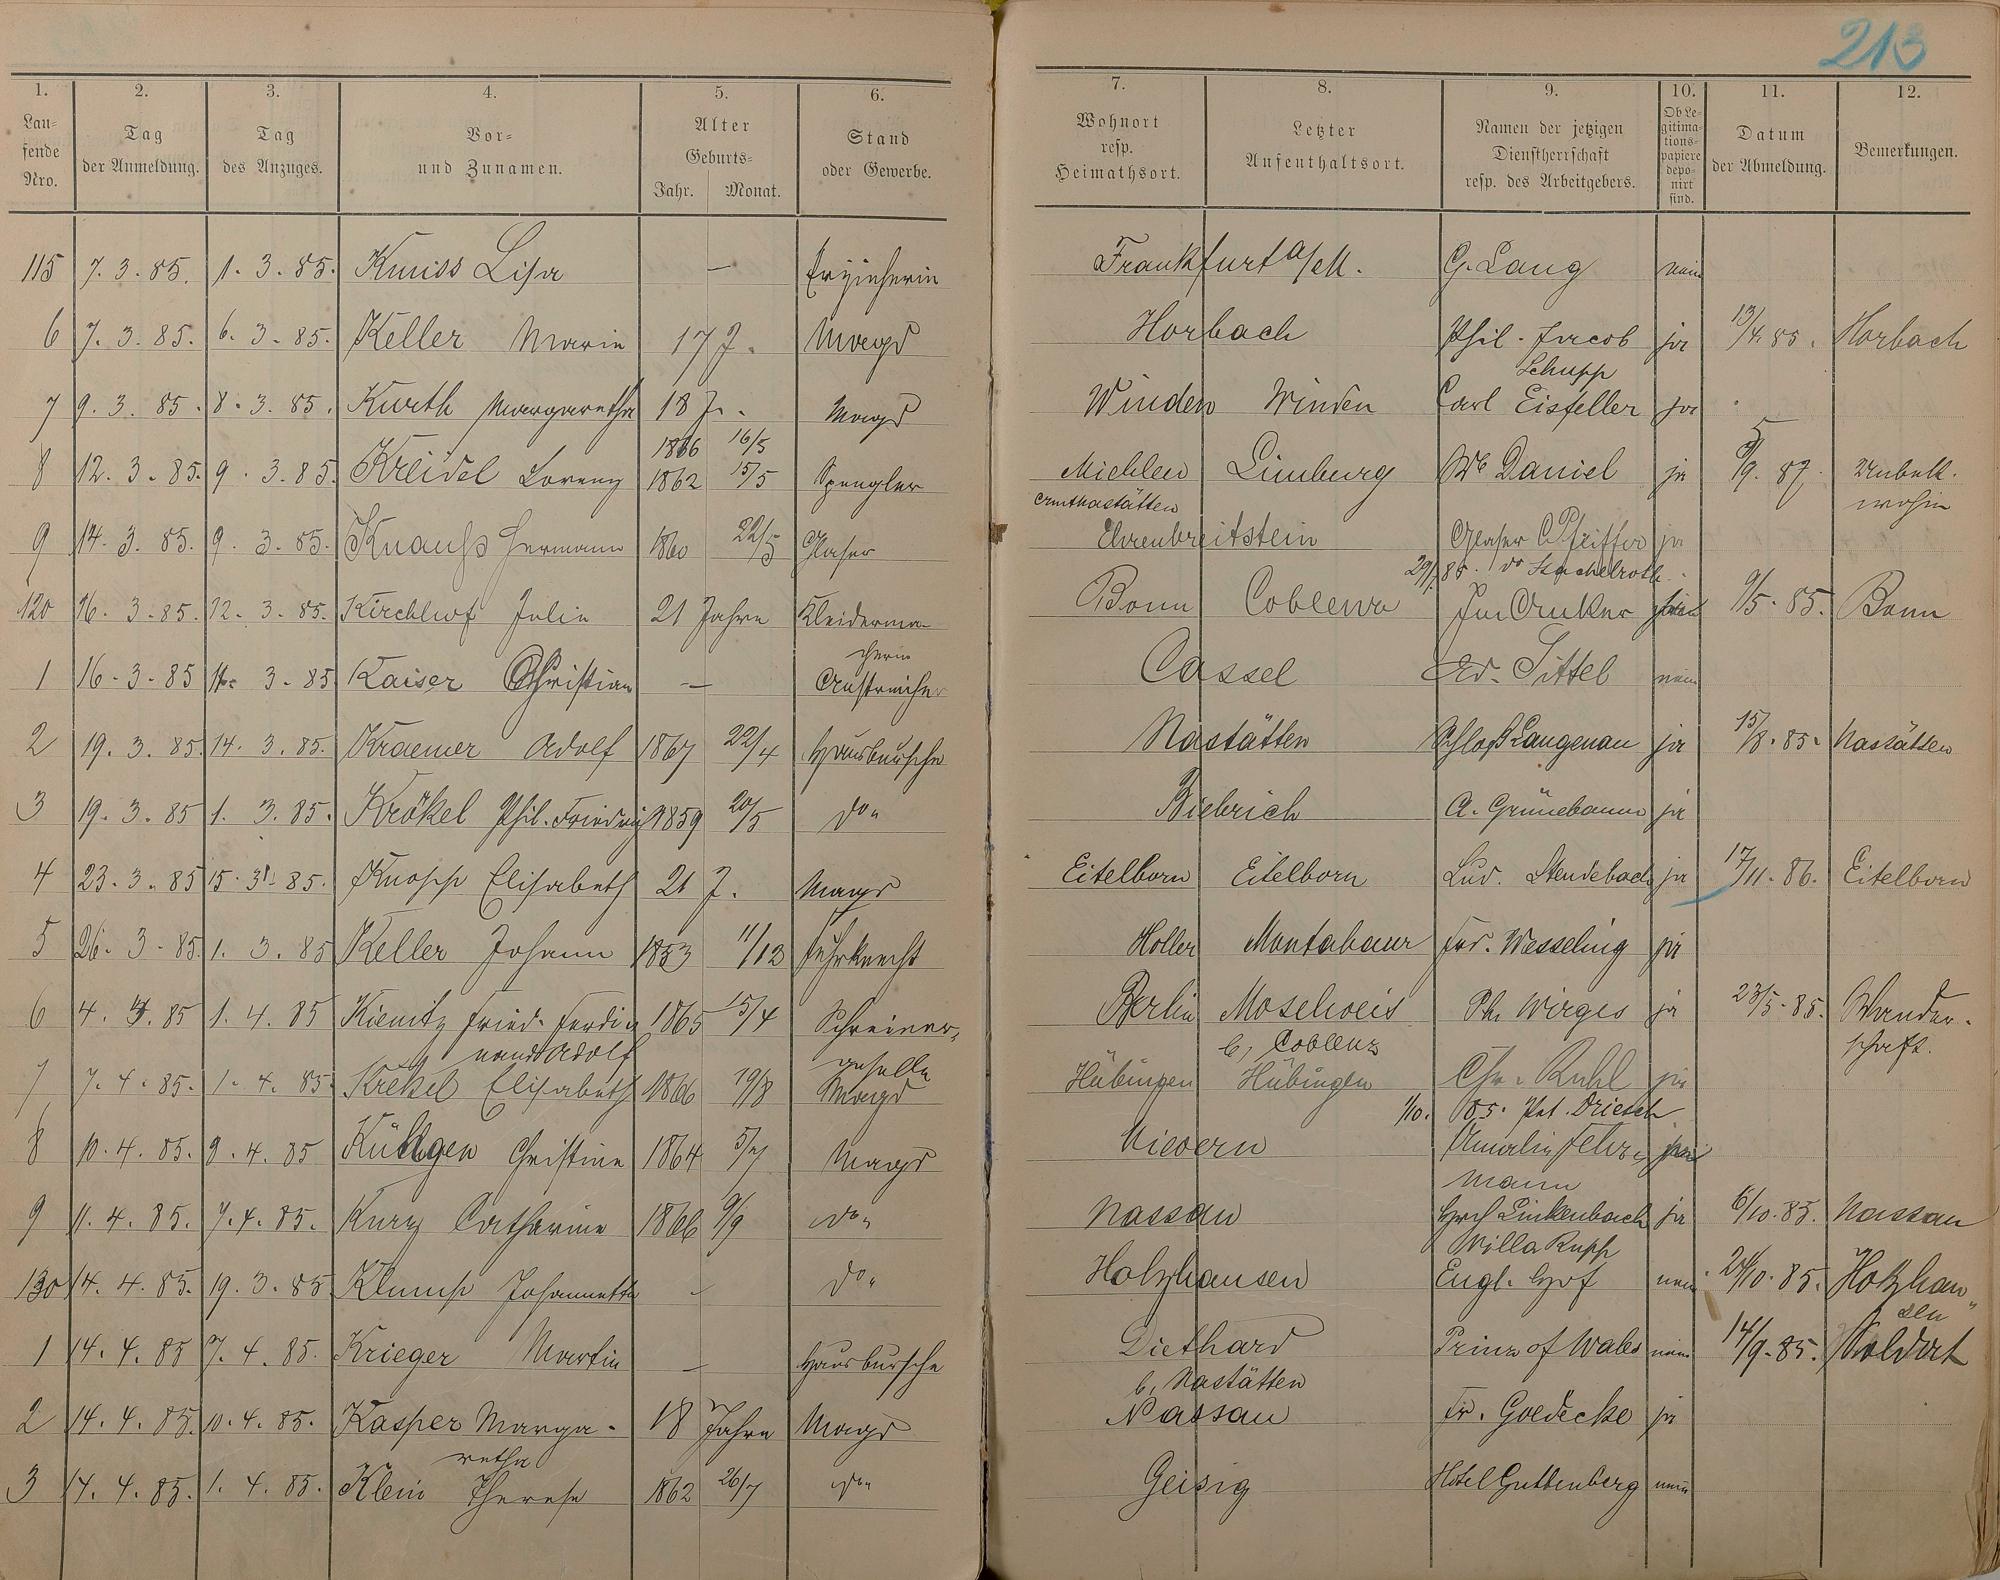 213
1. 2. 3. 4. 5. 6. 7. 8. 9. 10. 11. 12.
Lau-fende Nro. Tag der Anmeldung. Tag des Anzuges. Vor- und Zunamen. Alter Geburts- Jahr. Monat. Stand oder Gewerbe. Wohnort resp. Heimathsort. Letzter Aufenthaltsort. Namen der jetzigen Dienstherrschaft resp. des Arbeitgebers. Ob Le-gitima-tions-papiere depo-nirt sind. Datum der Abmeldung. Bemerkungen.
115 7. 3. 85. 1. 3. 85. Kniss Lisa — Erzieherin Frankfurt a/M. G. Lang nein
6 7. 3. 85. 6. 3. 85. Keller Marie 17 J. Magd Horbach Phil. Jacob Schupp ja 13/4 85. Horbach
7 9. 3. 85. 8. 3. 85. Kurth Margaretha 18 J. Magd Winden Winden Carl Eisfeller ja
1866 16/5
8 12. 3. 85. 9. 3. 85. Kreidel Lorenz 1862 15/5 Spengler Miehlen Limburg We Daniel ja 5/9. 87. Unbek. wohin
Amt Nastätten
9 14. 3. 85. 9. 3. 85. Knauß Hermann 1860 22/5 Glaser Ehrenbreitstein Glaser Pfeiffer ja
85. do Stachelroth
120 16. 3. 85. 12. 3. 85. Kirchhof Julie 21 Jahre Kleiderma-cherin Bonn Coblenz 9/5. 85. Bonn
1 16. 3. 85 3. 85 Kaiser Christian — Anstreicher Cassel Ed. Sittel nein
2 19. 3. 85. 14. 3. 85. Kraemer Adolf 1867 22/4 Hausbursche Nastätten Schloß Langenau ja 15/8. 85. Nastätten
3 19. 3. 85 1. 3. 85. Krökel Phil. Friedrich 1859 20/5 do " Biebrich A. Grünebaum ja
4 23. 3. 85 15. 3. 85. Knopp Elisabeth 21 J. Magd Eitelborn Eitelborn Lud. Stendebach ja 17/11. 86. Eitelborn
5 26. 3. 85. 1. 3. 85 Keller Johann 1853 11/12 Fuhrknecht Holler Montabaur Frd. Wesseling ja
6 4. 4. 85 1. 4. 85 Kienitz Fried. Ferdi-nand Adolf 1865 15/4 Schreiner-geselle Berlin Moselweis b. Coblenz Ph. Wirges ja 23/5. 85. Wander-schaft.
7 7. 4. 85. 1. 4. 85 Krekel Elisabeth 1866 19/8 Magd Hübingen Hübingen Chr. Ruhl ja
1/10. 85. Pet. Driesch
8 10. 4. 85. 9. 4. 85 Küttgen Christine 1864 5/7 Magd Nievern Amalie Fehr-mann
9 11. 4. 85. 7. 4. 85. Kurz Catharine 1866 9/9 do " Nassau Hrch Linkenbach Villa Rupp ja 6/10. 85. Nassau
130 14. 4. 85. 19. 3. 85 Klump Johannette — do " Holzhausen Engl. Hof nein 24/10. 85. Holzhau-sen
1 14. 4. 85 7. 4. 85. Krieger Martin — Hausbursche Diethard b. Nastätten Prinz of Wales nein 14/9. 85. Soldat
2 14. 4. 85. 10. 4. 85. Kasper Marga-retha 18 Jahre Magd Nassau Fr. Goedecke ja
3 14. 4. 85. 1. 4. 85. Klein Therese 1862 26/7 do " Geisig Hotel Guttenberg nein